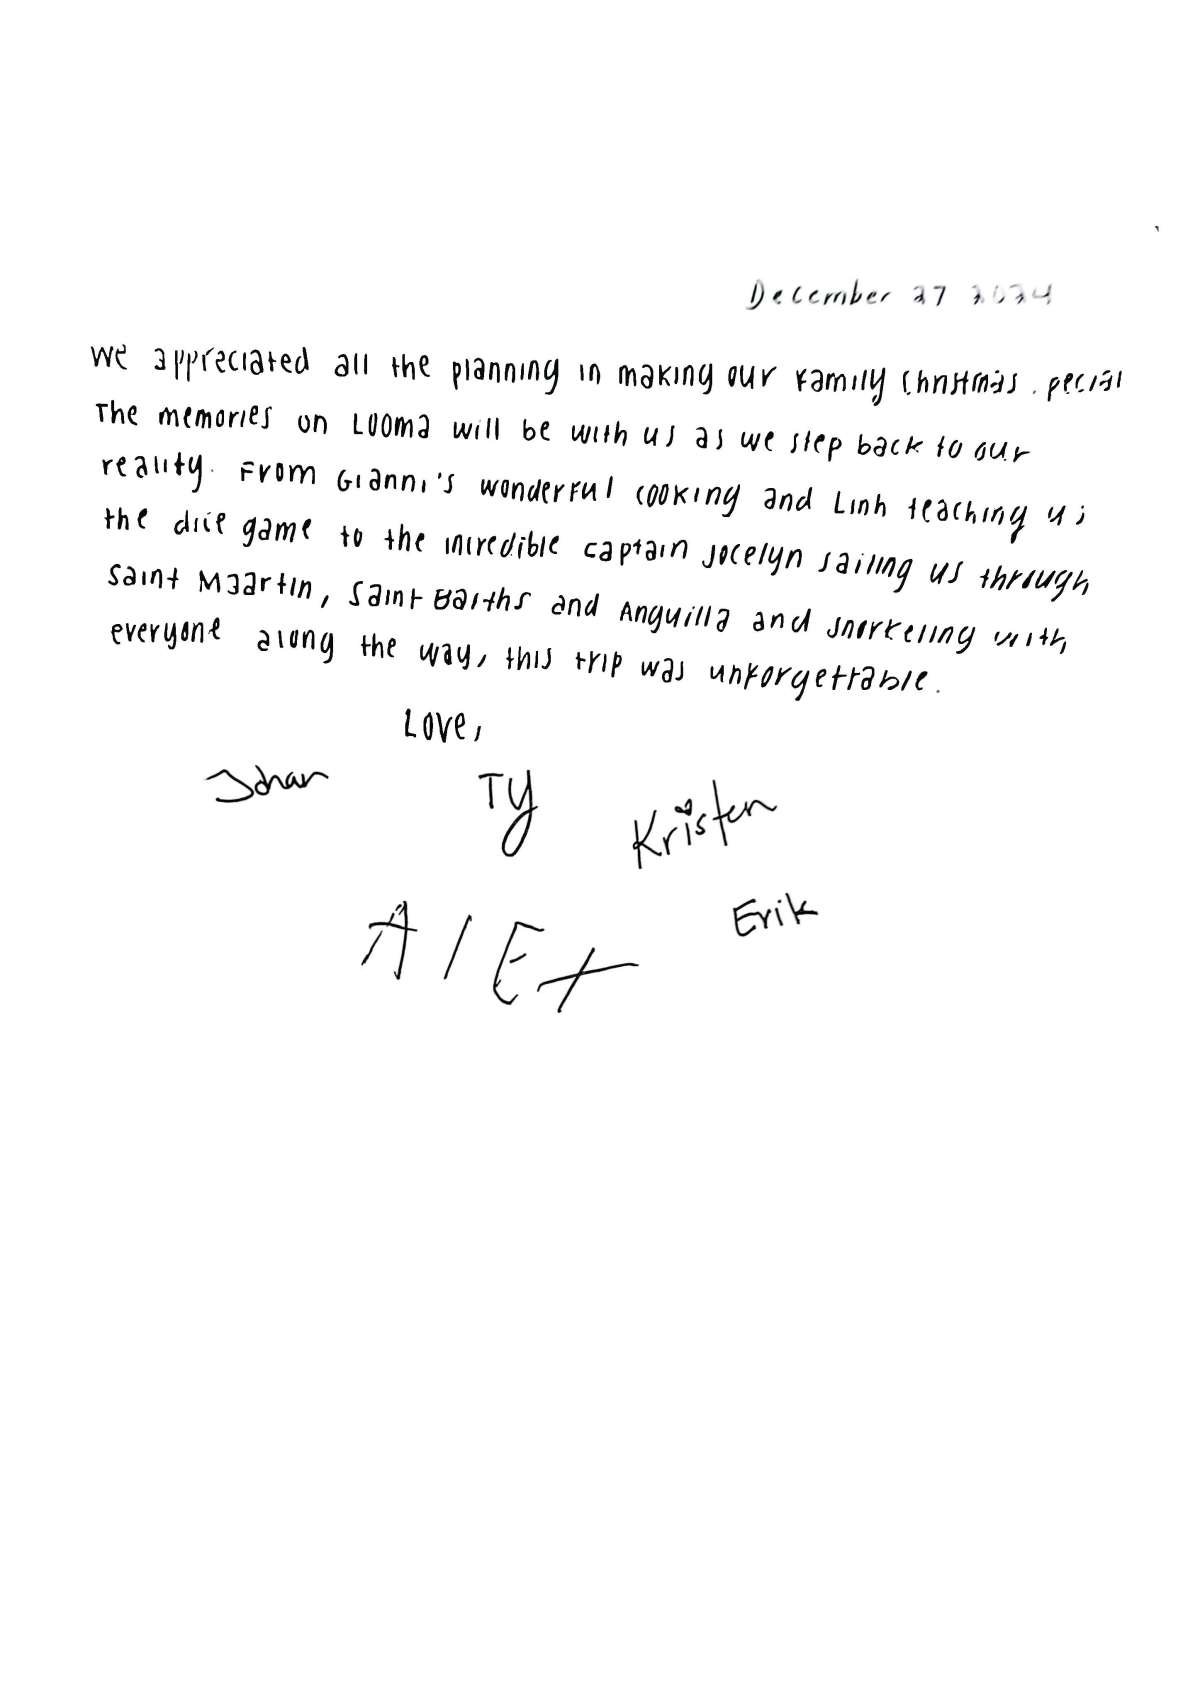 December 27 2024
We appreciated all the planning in making our Family Christmas special
The memories on Looma will be with us as we step back to our
reality. From Gianni's wonderful cooking and Linh teaching us
the dice game to the incredible captain Jocelyn sailing us through
Saint Maartin, Saint Barths and Anguilla and snorkeling with
everyone along the way, this trip was unforgettable.
Love,
Johan Ty Kristen
Alex Erik